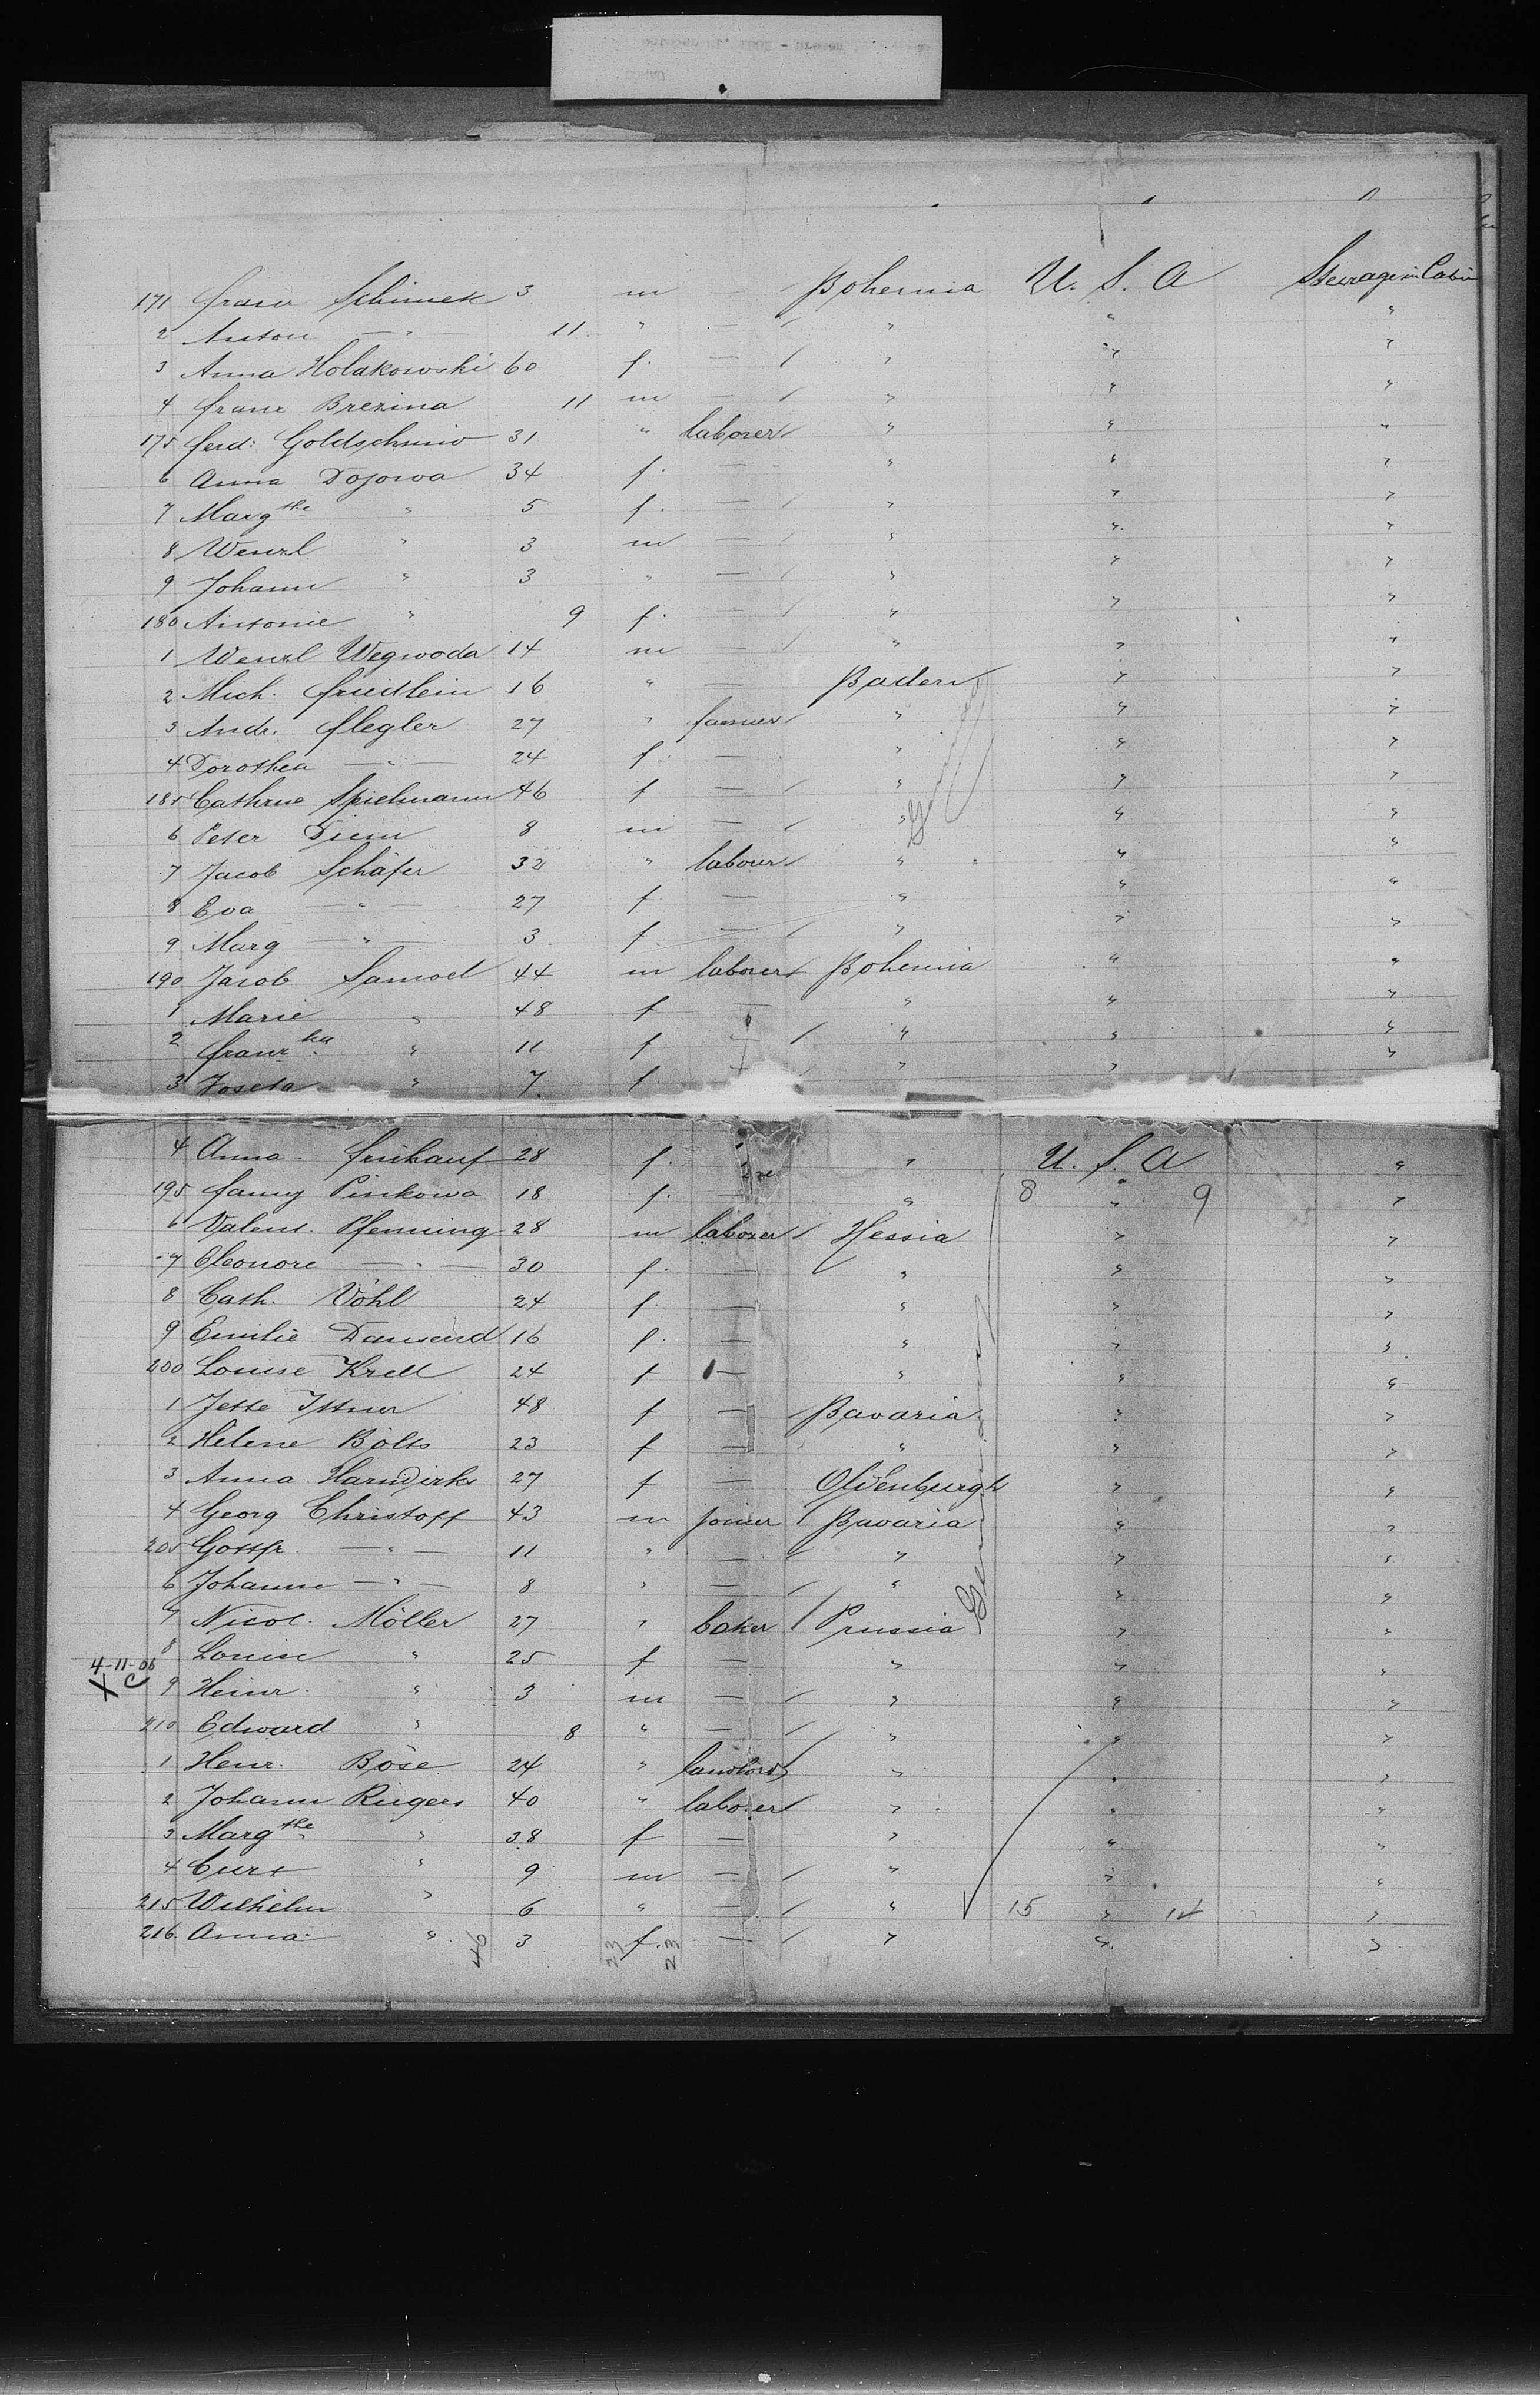 171 Franz Schimek 3 m Bohemia U. S. A Steerage in Cabin
2 Anton — " — 11 " — / " " "
3 Anna Holakowski 60 f. — / " " "
4 Franz Brezina 11 m — / " " "
175 Ferd: Goldschmid 31 " laborer / " " "
6 Anna Dojowa 34 f. — " " "
7 Marg the " 5 f. — / " " "
8 Wenzl " 3 m — / " " "
9 Johann " 3 " — / " " "
180 Antonie " 9 f. — / " " "
1 Wenzl Wegwoda 14 m — / " " "
2 Mich. Friedlein 16 " — Baden " "
3 Andr. Flegler 27 " farmer / " " "
4 Dorothea — " — 24 f. — " " "
185 Cathrine Spielmann 46 f — / " " "
6 Peter Diem 8 m — / " " "
7 Jacob Schäfer 32 " labourer / " " "
8 Eva — " — 27 f. — " " "
9 Marg — " — 3 f. — / " " "
190 Jacob Samoel 44 m laborer / Bohemia " "
1 Marie " 48 f — " " "
2 Franz ka " 11 f / " " "
3 Josefa " 7 f. " " "
4 Anna Fruhauf 28 f. " U. S. A "
195 Fanny Pinkowa 18 f. — " 8 " 9 "
6 Valent. Pfenning 28 m laborer / Hessia " "
7 Eleonore — " — 30 f. — " " "
8 Cath. Vohl 24 f. — " " "
9 Emilie Dausend 16 f. — " " "
200 Louise Krell 24 f — " " "
1 Jette Ittner 48 f — Bavaria " "
2 Helene Bolts 23 f — " " "
3 Anna Harmdirks 27 f — Oldenburgh " "
4 Georg Christoff 43 m joiner / Bavaria " "
205 Gottfr. — " — 11 " — / " " "
6 Johann — " — 8 " — / " " "
7 Nicol. Möller 27 " baker / Prussia " "
8 Louise " 25 f — " " "
4-11-06
X C 9 Heinr. " 3 m — / " " "
210 Edward " 8 " — / " " "
1 Henr. Böse 24 " landlord / " " "
2 Johann Rugers 40 " laborer / " " "
3 Marg the " 38 f — " " "
4 Curt " 9 m — / " " "
215 Wilhelm " 6 " — / " 15 " 14 "
216. Anna " 3 f. — / " " "
46 23 23